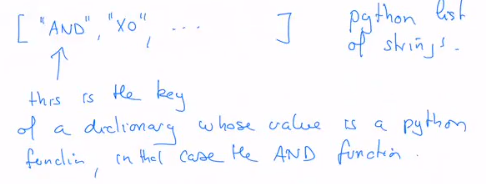 ["AND", "XO", ... ] python list
of strings.
this is the key
of a dictionary whose value is a python
function, in that case the AND function.